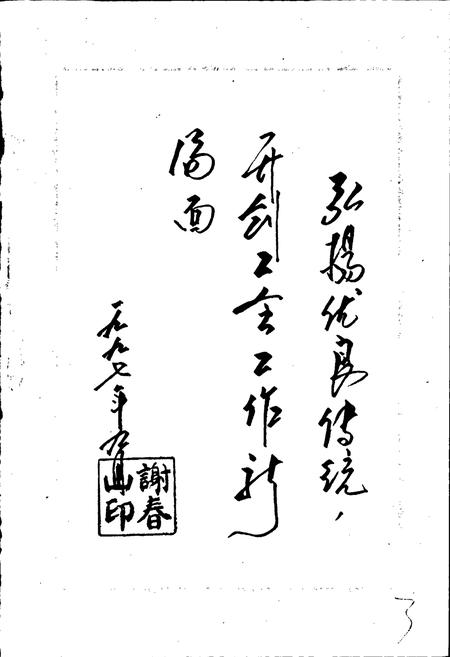 弘揚优良传统，
开创工会工作新
局面
一九九七年九月
謝春山印
3